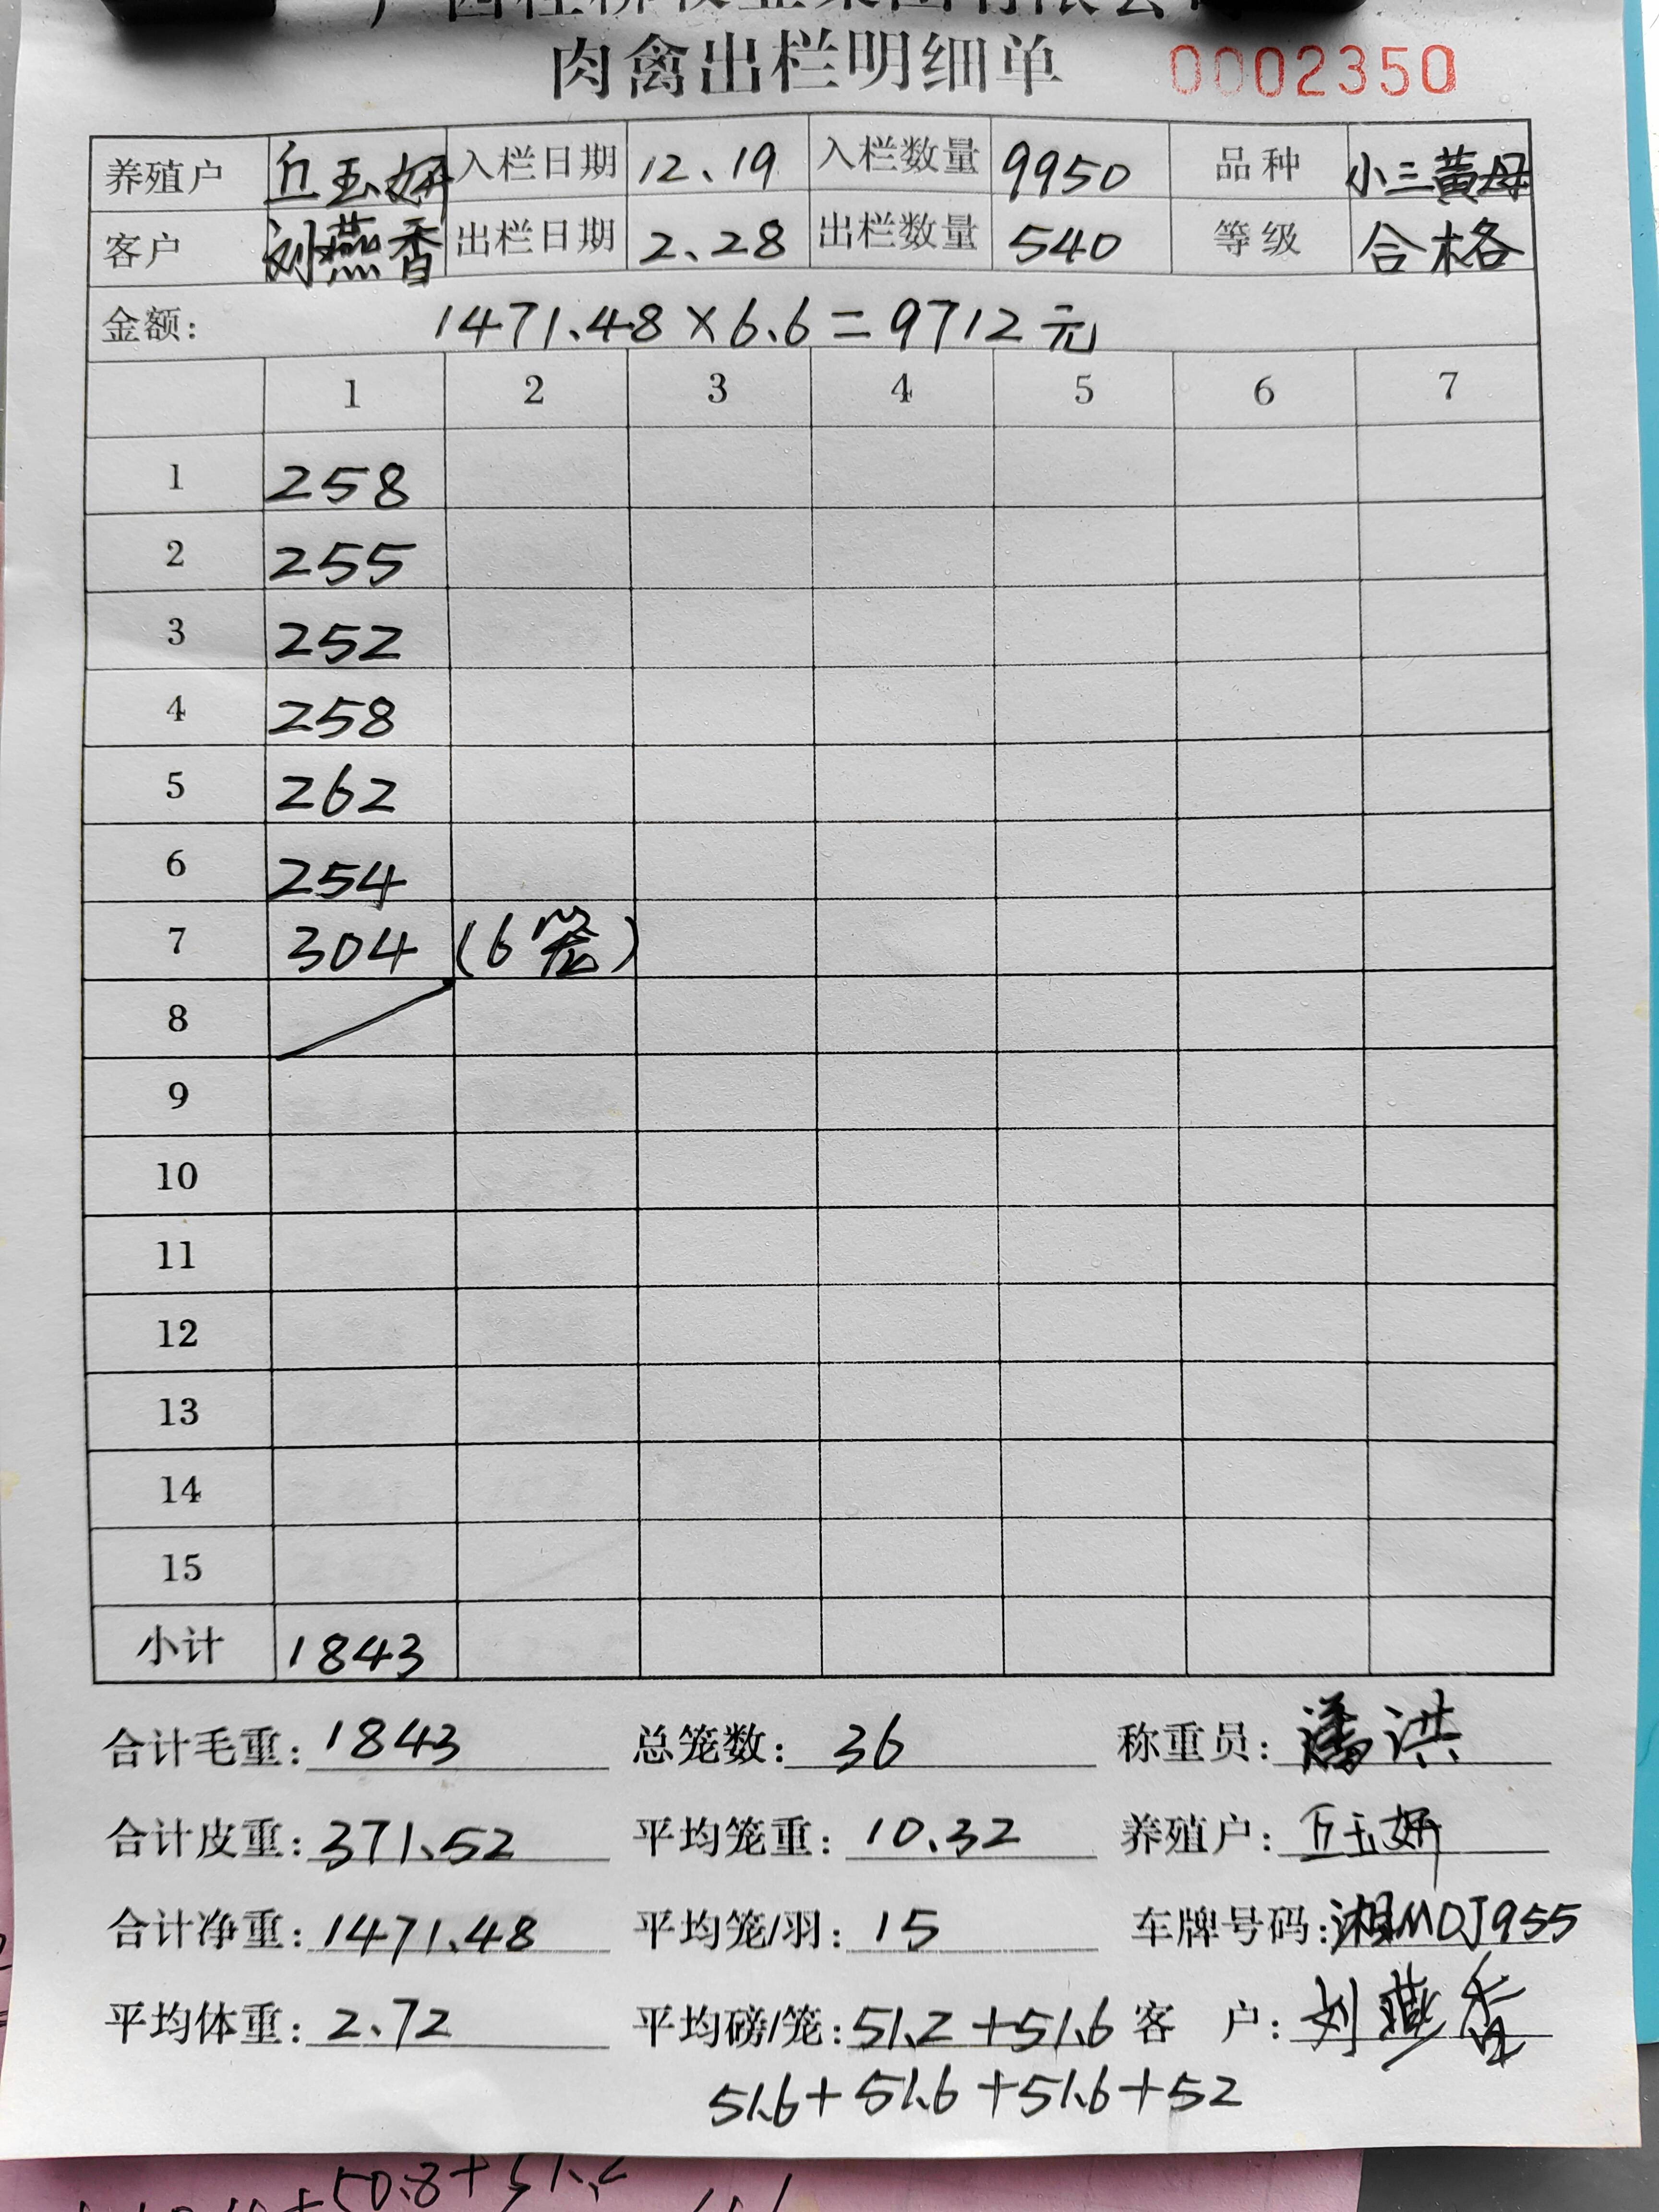 肉禽出栏明细单 0002350
养殖户 丘玉妍 入栏日期 12.19 入栏数量 9950 品种 小三黄母
客户 刘燕香 出栏日期 2.28 出栏数量 540 等级 合格
金额: 1471.48×6.6=9712元
1 2 3 4 5 6 7
1 258
2 255
3 252
4 258
5 262
6 254
7 304 (6笼)
8
9
10
11
12
13
14
15
小计 1843
合计毛重: 1843 总笼数: 36 称重员: 潘洪
合计皮重: 371.52 平均笼重: 10.32 养殖户: 丘玉妍
合计净重: 1471.48 平均笼/羽: 15 车牌号码: 湘M0J955
平均体重: 2.72 平均磅/笼: 51.2+51.6 客 户: 刘燕香
51.6+51.6+51.6+52
50.8+51.2